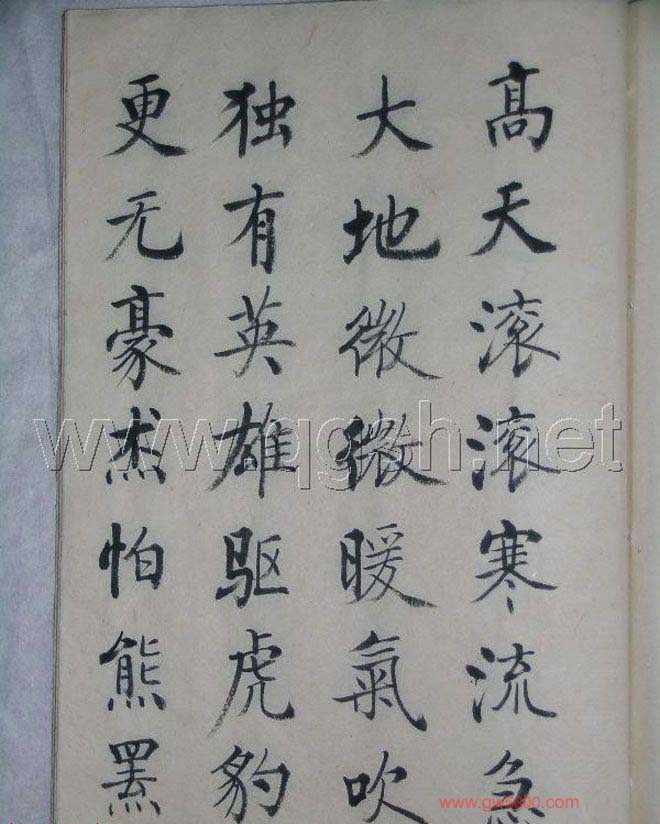 高天滚滚寒流急
大地微微暖氣吹
独有英雄驱虎豹
更无豪杰怕熊罴
www.gw8000.com